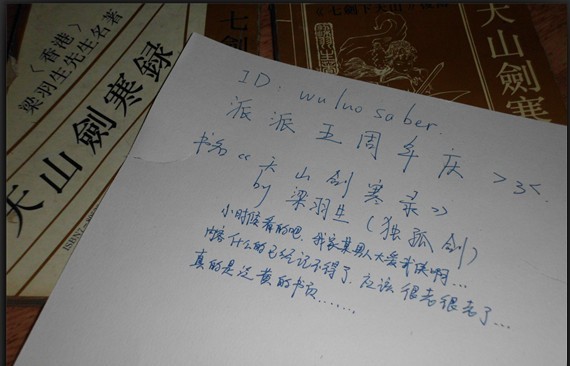 〈香港〉
梁羽生先生名著
天山劍寒録
七劍
《七劍下天山》
天山劍寒
ID: wuluosaber.
派派五周年庆 >3<.
书名《天山剑寒录》
by 梁羽生(独孤剑)
小时候看的吧. 我家某男人大爱武侠啊...
内容什么的已经记不得了. 应该很老很老了...
真的是泛黄的书页......